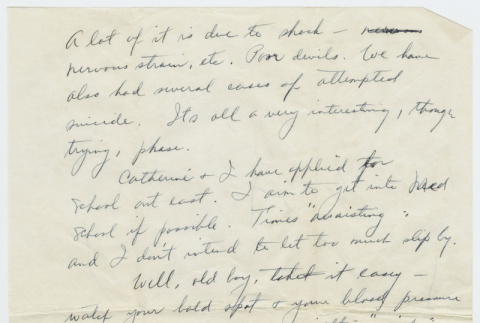 A lot of it is due to shock - nervous
nervous strain, etc. Poor devils. We have
also had several cases of attempted
suicide. It's all a very interesting, though
trying, phase.
Catherine & I have applied for
school out east. I aim to get into
school if possible. Times "awaisting"
and I don't intend to let too much slip by.
Well, old boy, take it easy -
watch your bald spot & your blood pressure